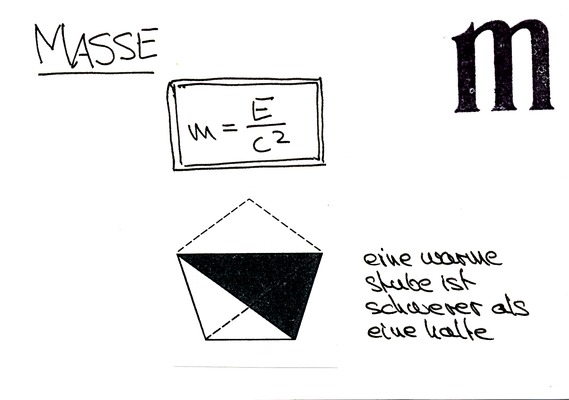 MASSE
m
m = E/c²
eine warme
stube ist
schwerer als
eine kalte